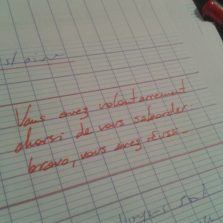 Vous avez volontairement
choisi de vous saborder.
bravo, vous avez réussi